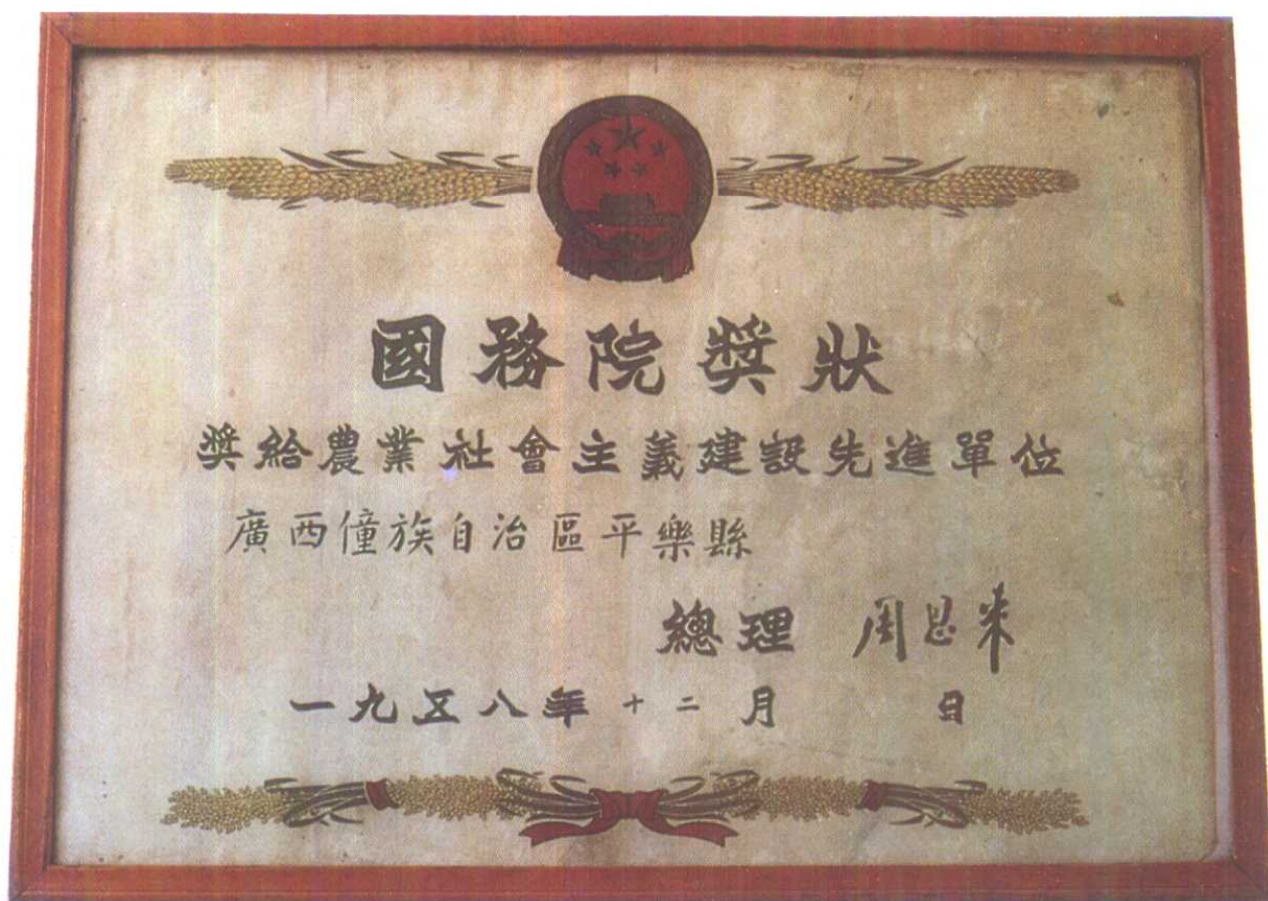 國務院獎狀
獎給農業社會主義建設先進單位
廣西僮族自治區平樂縣
總理 周恩来
一九五八年十二月 日